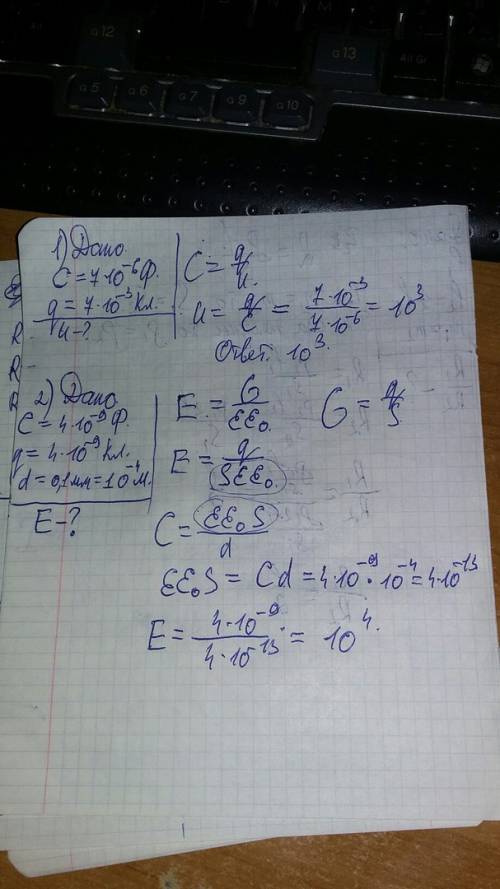 G12
G13
Alt Gr
G5 G6 G7 G9 G10
1) Дано.
C = 7·10⁻⁶ Ф.
q = 7·10⁻³ Кл.
u - ?
C = q/u.
u = q/C = 7·10⁻³/7·10⁻⁶ = 10³
Ответ: 10³.
R -
R -
R
2) Дано
C = 4·10⁻⁹ Ф.
q = 4·10⁻⁹ Кл.
d = 0,1 мм = 10⁻⁴ м.
E - ?
E = G/εε₀. G = q/S
E = q/Sεε₀.
C = εε₀S/d
εε₀S = Cd = 4·10⁻⁹·10⁻⁴ = 4·10⁻¹³
E = 4·10⁻⁹/4·10⁻¹³ = 10⁴.